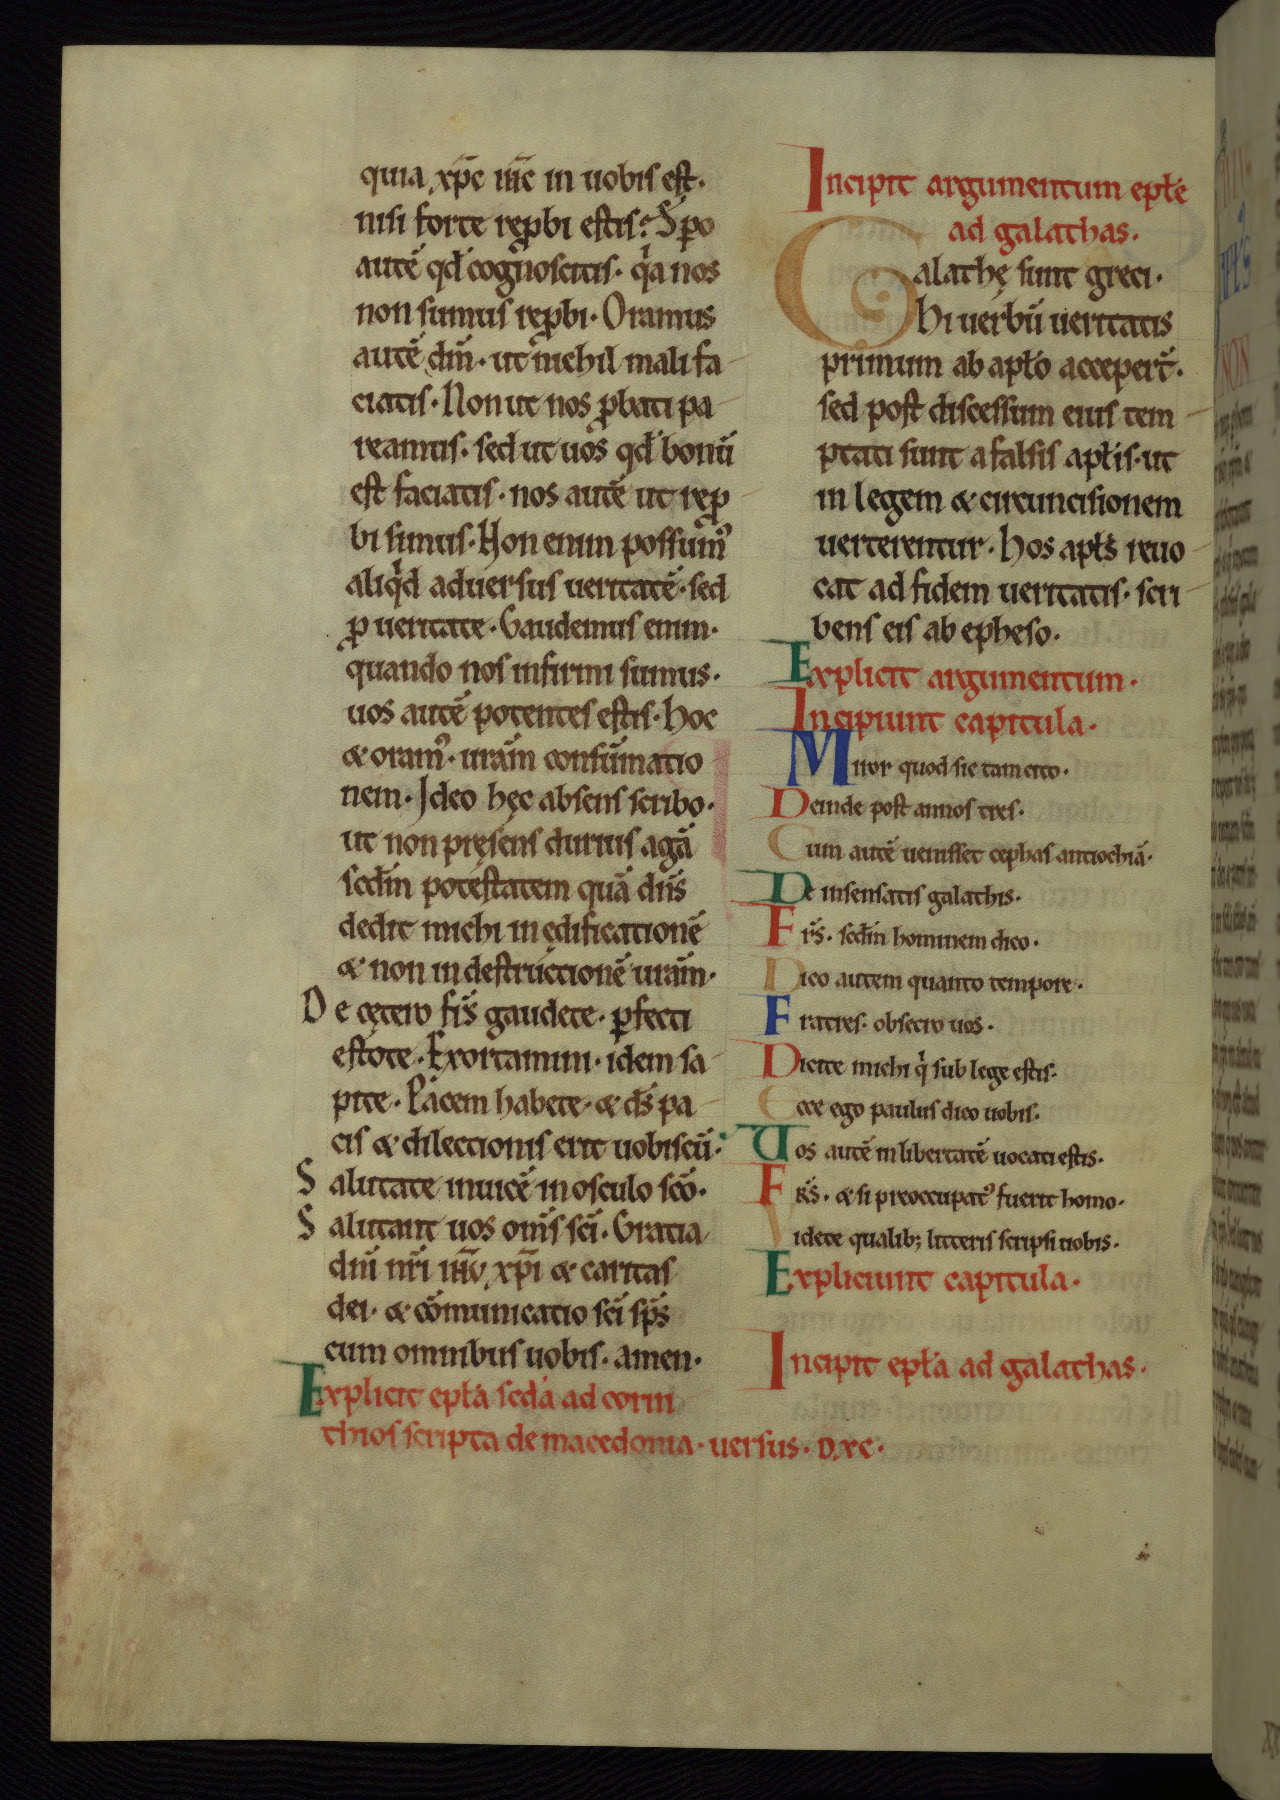 quia xp̄c iħc in uobis est.
nisi forte rep̱bi estis? Spo
autē qđ cognoscitis. qͥa nos
non sumus rep̱bi. Oramus
autē dm̄. ut nichil mali fa
ciatis. Non ut nos p̱bati pa
reamus. sed ut uos qđ bonū
est faciatis. nos autē ut rep̱
bi simus. Non enim possumꝰ
aliqͥd aduersus ueritatē. sed
p̱ ueritate. Gaudemus enim.
quando nos infirmi sumus.
uos autē potentes estis. Hoc
& oramꝰ. urām consūmatio
nem. Ideo hęc absens scribo.
ut non pręsens durius agā
scđm potestatem quā dn̄s
dedit michi in ędificationē
& non in destructionē urām.
De cętero fr̄s gaudete. ꝑfecti
estote. Exortamini. idem sa
pite. Pacem habete. & ds̄ pa
cis & dilectionis erit uobiscū.
Salutate inuicē in osculo scō.
Salutant uos om̄s scī. Gratia
dn̄i nr̄i iħu xp̄i & caritas
dei. & cōmunicatio scī sp̄s
cum omnibus uobis. amen.
Explicit epƚa scđa ad corin
thios scripta de macedonia. uersus. D.xc.
Incipit argumentum epƚe
ad galathas.
Galathę sunt greci.
Hi uerbū ueritatis
primum ab apƚo acceper̄t.
sed post discessum eius tem
ptati sunt a falsis apƚis. ut
in legem & circuncisionem
uerterentur. Hos apƚs reuo
cat ad fidem ueritatis. scri
bens eis ab epheso.
Explicit argumentum.
Incipiunt capitula.
Miror quod sic tam cito.
Deinde post annos tres.
Cum autē uenisset cephas antiochiā.
De insensatis galathis.
Fr̄s. scđm hominem dico.
Dico autem quanto tempore.
Fratres. obsecro uos.
Dicite michi qͥ sub lege estis.
Ecce ego paulus dico uobis.
Uos autē in libertatē uocati estis.
FRS̄. & si preoccupatꝰ fuerit homo.
Videte qualib; litteris scripsi uobis.
Expliciunt capitula.
Incipit epƚa ad galathas.